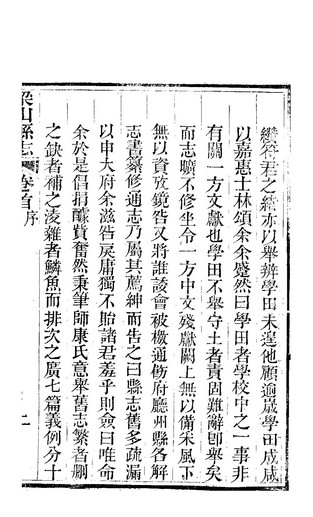 纘符君之緒亦以舉辦學田未遑他顧逾歲學田成咸
以嘉惠士林頌余余蹙然曰學田者學校中之一事非
有關一方文獻也學田不舉守土者責固難辭卽舉矣
而志曠不修坐令一方中文殘獻闕上無以備朱風下
無以資攷鏡咎又將誰諉會被檄通飭府廳州縣各解
志書纂修通志乃屬其薦紳而告之曰縣志舊多疏漏
以申大府余滋咎戾庸獨不貽諸君羞乎則僉曰唯命
余於是倡捐醵貲奮然秉筆師康氏意舉舊志繁者刪
之缺者補之淩雜者鱗魚而排次之廣七篇義例分十
梁山縣志 卷首 序